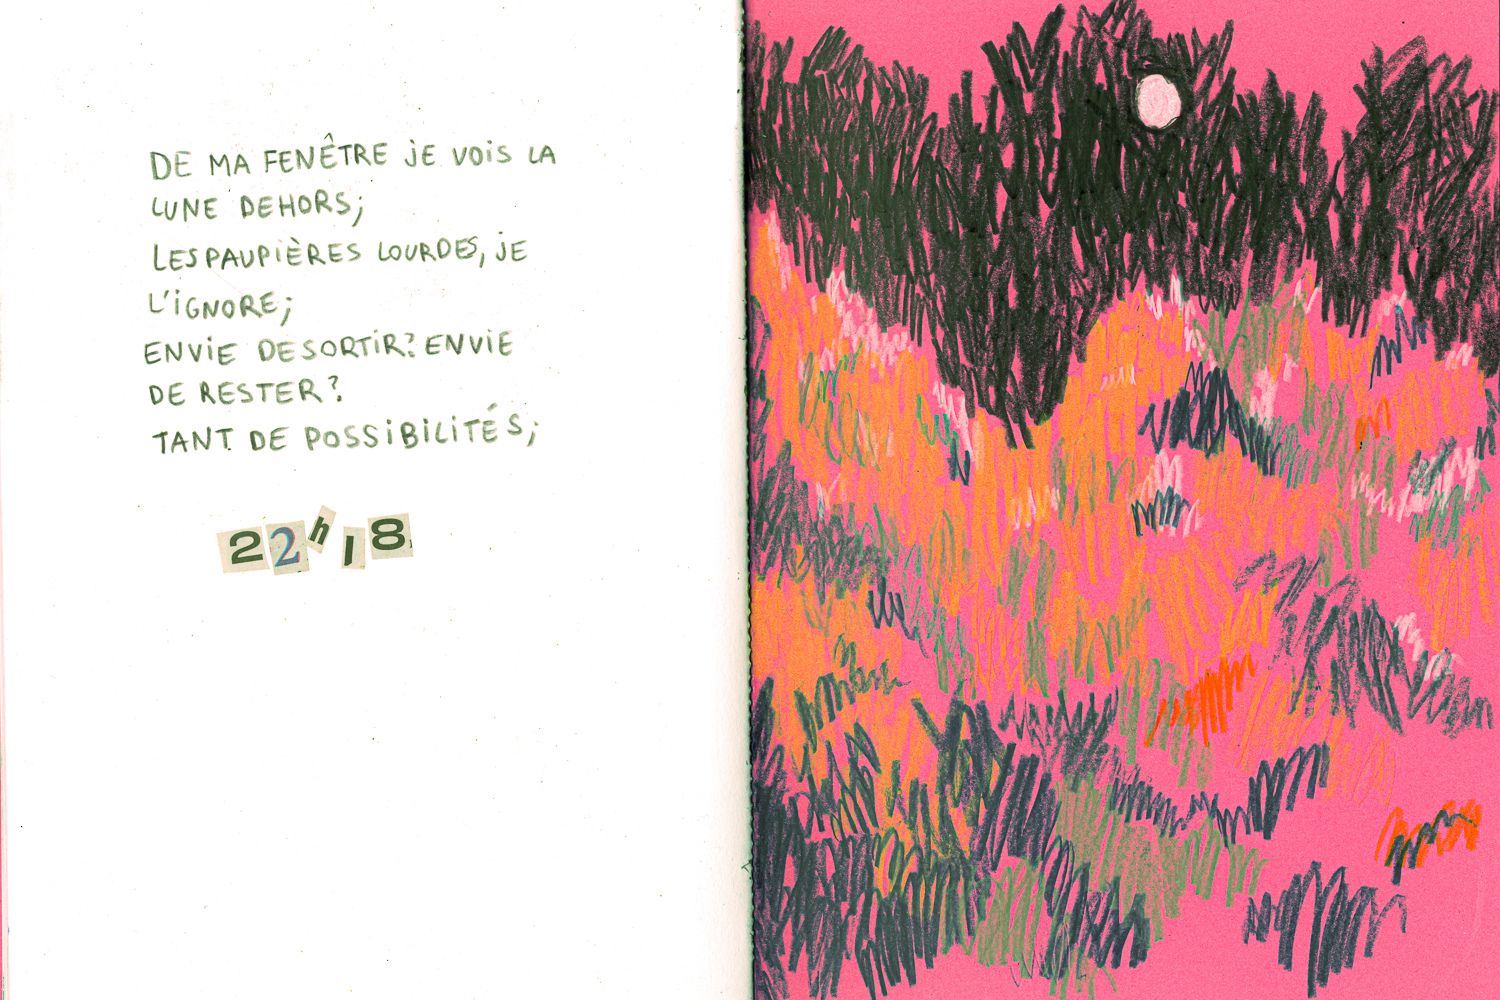 DE MA FENÊTRE JE VOIS LA
LUNE DEHORS;
LES PAUPIÈRES LOURDES, JE
L'IGNORE;
ENVIE DE SORTIR? ENVIE
DE RESTER?
TANT DE POSSIBILITÉS;
22h18